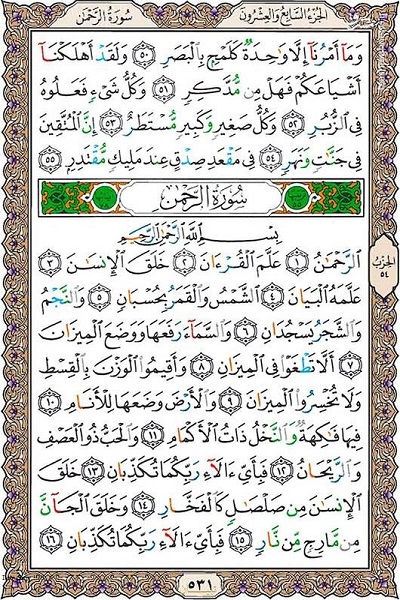 الجزء السابع والعشرون سورة الرحمن
وَمَآ أَمْرُنَآ إِلَّا وَٰحِدَةٌ كَلَمْحٍۭ بِٱلْبَصَرِ ٥٠ وَلَقَدْ أَهْلَكْنَآ
أَشْيَاعَكُمْ فَهَلْ مِن مُّدَّكِرٍ ٥١ وَكُلُّ شَىْءٍ فَعَلُوهُ
فِى ٱلزُّبُرِ ٥٢ وَكُلُّ صَغِيرٍ وَكَبِيرٍ مُّسْتَطَرٌ ٥٣ إِنَّ ٱلْمُتَّقِينَ
فِى جَنَّٰتٍ وَنَهَرٍ ٥٤ فِى مَقْعَدِ صِدْقٍ عِندَ مَلِيكٍ مُّقْتَدِرٍۭ ٥٥
سُورَةُ الرَّحْمٰن
بِسْمِ ٱللَّهِ ٱلرَّحْمَٰنِ ٱلرَّحِيمِ
ٱلرَّحْمَٰنُ ١ عَلَّمَ ٱلْقُرْءَانَ ٢ خَلَقَ ٱلْإِنسَٰنَ ٣
عَلَّمَهُ ٱلْبَيَانَ ٤ ٱلشَّمْسُ وَٱلْقَمَرُ بِحُسْبَانٍ ٥ وَٱلنَّجْمُ
وَٱلشَّجَرُ يَسْجُدَانِ ٦ وَٱلسَّمَآءَ رَفَعَهَا وَوَضَعَ ٱلْمِيزَانَ
٧ أَلَّا تَطْغَوْا۟ فِى ٱلْمِيزَانِ ٨ وَأَقِيمُوا۟ ٱلْوَزْنَ بِٱلْقِسْطِ
وَلَا تُخْسِرُوا۟ ٱلْمِيزَانَ ٩ وَٱلْأَرْضَ وَضَعَهَا لِلْأَنَامِ ١٠
فِيهَا فَٰكِهَةٌ وَٱلنَّخْلُ ذَاتُ ٱلْأَكْمَامِ ١١ وَٱلْحَبُّ ذُو ٱلْعَصْفِ
وَٱلرَّيْحَانُ ١٢ فَبِأَىِّ ءَالَآءِ رَبِّكُمَا تُكَذِّبَانِ ١٣ خَلَقَ
ٱلْإِنسَٰنَ مِن صَلْصَٰلٍ كَٱلْفَخَّارِ ١٤ وَخَلَقَ ٱلْجَآنَّ
مِن مَّارِجٍ مِّن نَّارٍ ١٥ فَبِأَىِّ ءَالَآءِ رَبِّكُمَا تُكَذِّبَانِ ١٦
الحزب
٥٤
٥٣١